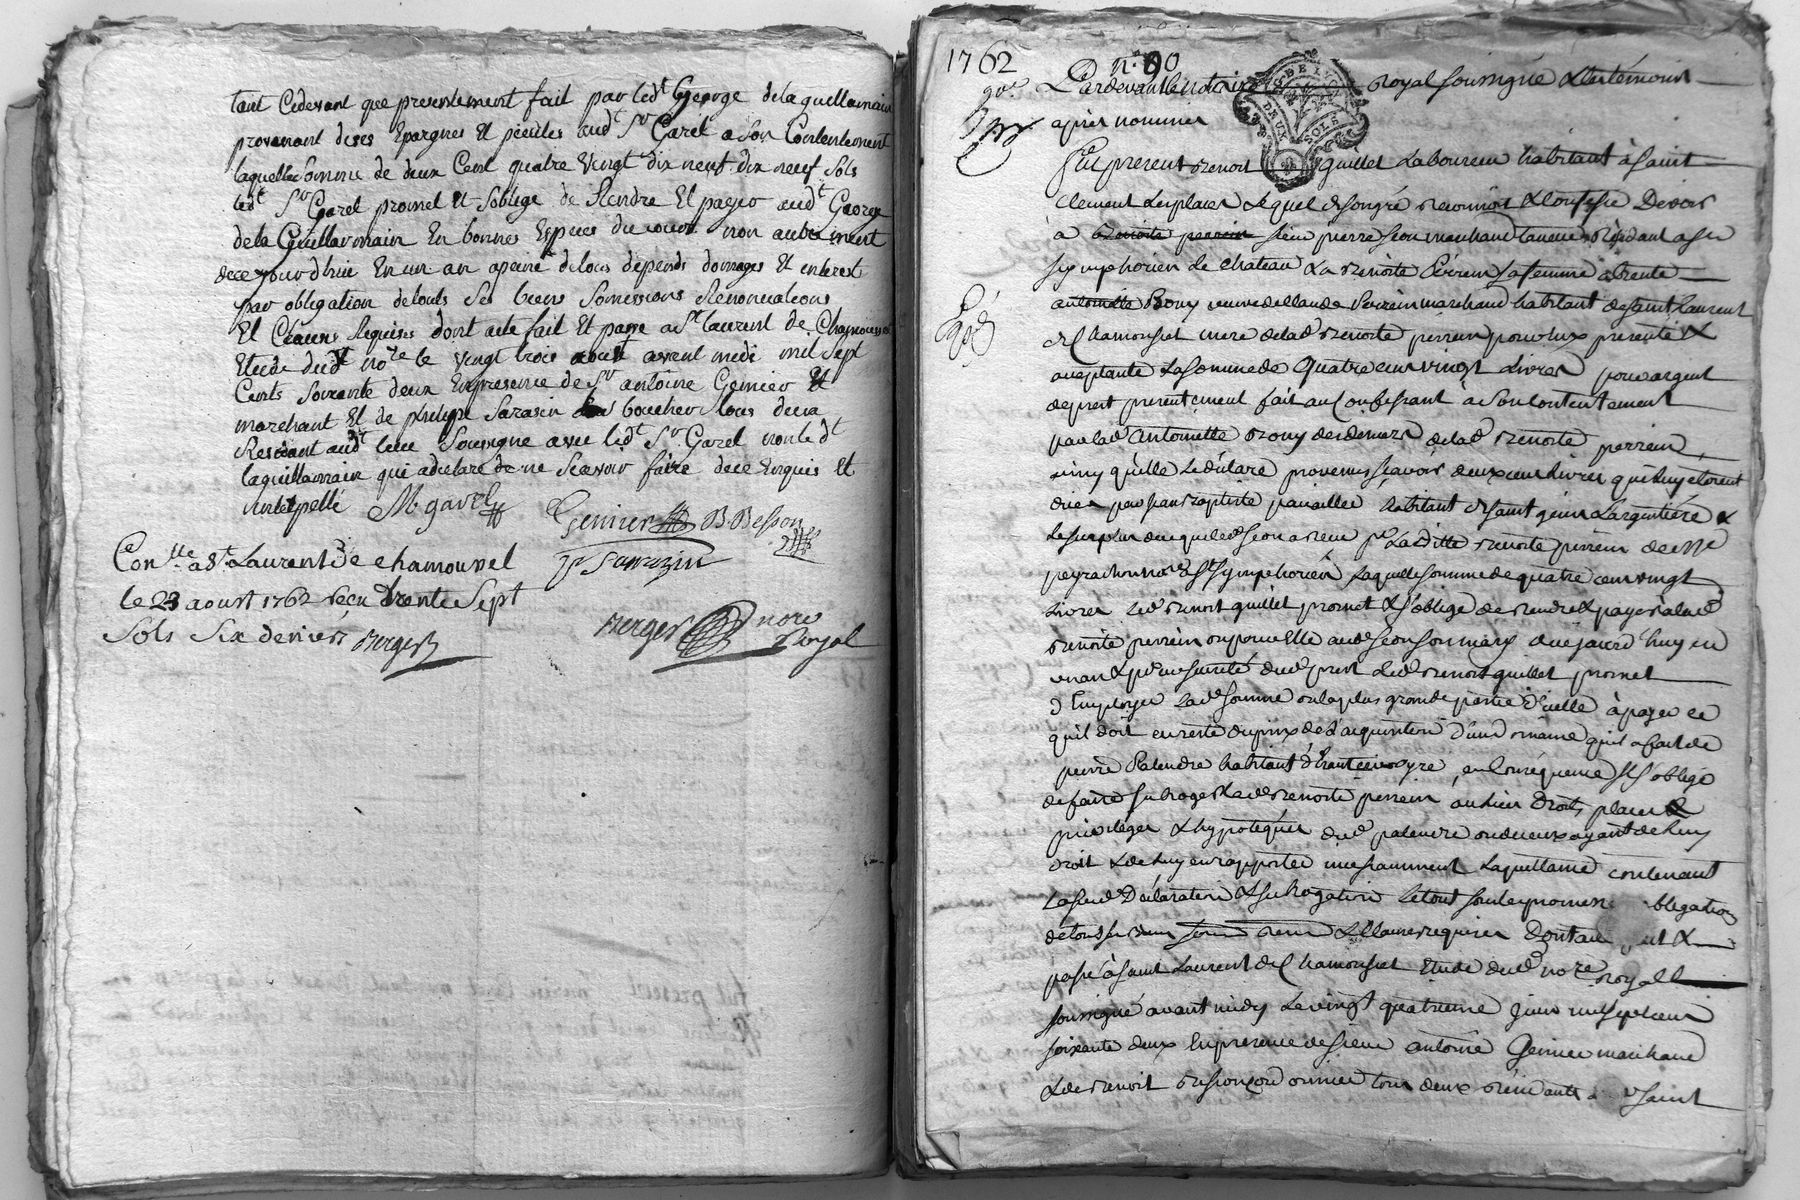 tant Cedevant que presentement fait par ledt George delaguellaumain
provenant deses Epargnes Et pecules audt Sr Garel a Son Contentement
laquelle Somme de deux Cent quatre vingt dix neuf dix neuf Sols
ledt Sr Garel promet Et Soblige de Rendre Et payer audt George
dela Guillaumain En bonnes Espèces du cour non autrement
dece jourdhui En un an apeine detous depends domages Et interest
par obligation detouts Ses biens Somissions Renonciations
Et Clauses Requises dont acte fait Et passe a St laurent de Chamousset
Etude dudt nore le vingt trois aoust avant midi mil Sept
Cents Soixante deux Enpresence de Sr antoine Genier Et
marchant Et de philipe Sarasin boucher tous deux
Residant audt lieu Soussigne avec ledt Sr Garel non ledt
laguillaumain qui adeclare de ne Scavoir faire dece Enquis Et
interpellé M garel
Genier B. Besson
Conlle a St Laurent De chamousset
P Sarrazin
le 23 aoust 1762 Reçu Trente Sept
Sols Six deniers Berger
Berger nore
Royal
1762 n. 90
Pardevant le notaire royal soussigné & les témoins
après nommés
DE LYON
DEUX SOLS
fut present Benoit guillet Laboureur habitant à saint
Clement les places Lequel de son gré reconnoit & confesse Devoir
à Benoite perrin sieur pierre seon marchand tanneur résidant a St
symphorien le chateau & a Benoite Perrein sa femme absente
antoinette Bony veuve de Claude Perrein marchand habitant de saint Laurent
de Chamousset mere de lad Benoite perrein pour eux presente &
acceptante La somme de Quatre cent vingt Livres pour argent
de prest presentement fait au confessant à son contentement
par lad antoinette Bony des deniers de lad Benoite perrein
ainsy qu'elle Le déclare provenus scavoir deux cent livres qui luy etoient
dües par Jean Baptiste habitant de saint genis Largentière &
Le surplus duquel led seon a reçu pr Laditte Benoite perrein de me
peyrachon nore à St symphorien Laquelle somme de quatre cent vingt
Livres Led Benoit guillet promet & s'oblige de rendre & payer a lad
Benoite perrein ou pour elle aud seon son mary d'uejourd'huy en
un an & pr sureté dud prest Led Benoit guillet promet
d'Employer Lad somme ou la plus grande partie d'icelle à payer ce
qu'il doit en reste du prix de L'acquisition d'un domaine qu'il a fait de
pierre Palandre habitant d'hauterivoyre, en conséquence il s'oblige
de faire subroger Lad Benoite perrein au lieu Droits places &
privileges & hypoteques dud palandre ou de ceux ayant de luy
droit & de luy en rapporter incessamment La quittance contenant
La sud Déclaration & subrogation Le tout sous les promesses obligation
de tous ses biens & Clauses requises Dont acte fait &
passé à saint Laurent de Chamousset Etude dud nore royal
soussigné avant midy Le vingt quatrieme Juin mil sept cent
soixante deux En presence de sieur antoine Genier marchand
& de Benoit Besson cordonnier tous deux résidants a saint